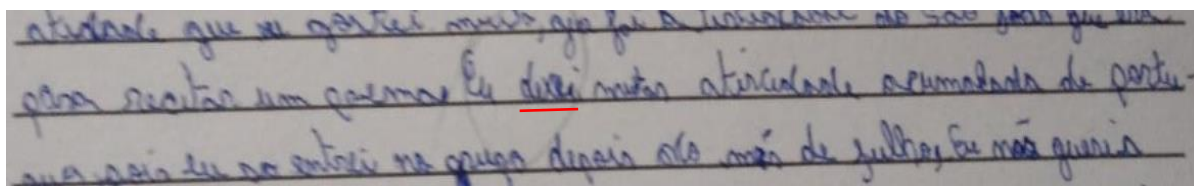 atividade que eu gostei mais, foi a atividade do São João que era
para recitar um poema Eu dixei muitas atividade acumalada de portu-
pois eu so entrei no grupo depois do mês de julho, Eu não queria